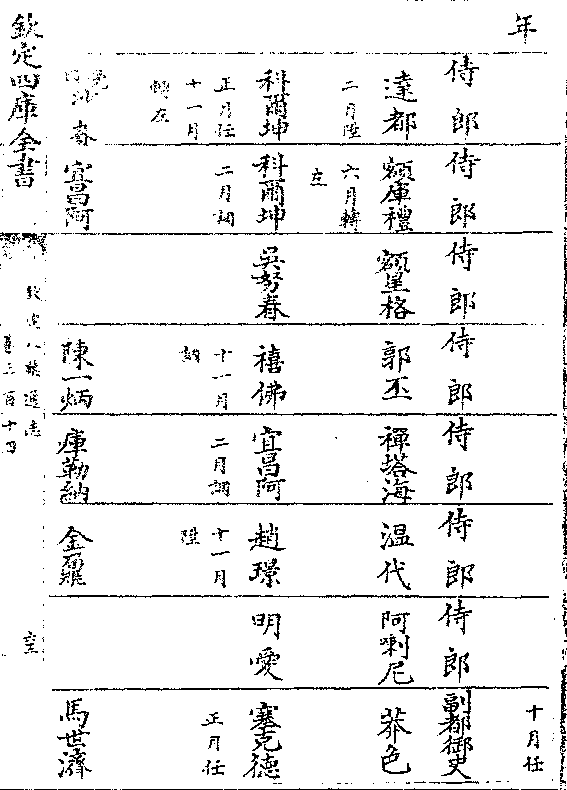 年 十月任
侍郎 侍郎 侍郎 侍郎 侍郎 侍郎 侍郎 副都御史
達都 額庫禮 額星格 郭丕 禪塔海 溫代 阿喇尼 莽色
二月陞 六月轉
左
科爾坤 科爾坤 吳努春 禧佛 宜昌阿 趙璟 明愛 塞克德
正月任 二月調 十一月 二月調 十一月 正月任
十一月 陞
轉左
宜昌阿 陳一炳 庫勒納 金鼐 馬世濟
欽定八旗通志
卷三百十四
欽定四庫全書